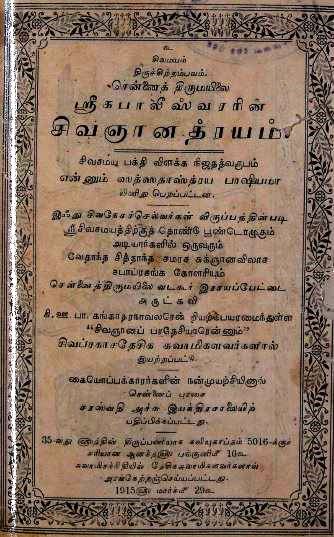 உ
சிவமயம்
திருச்சிற்றம்பலம்.
சென்னைத் திருமயிலை
ஸ்ரீகபாலீஸ்வரரின்
சிவஞானத்ரயம்.
சிவசமய பக்தி விளக்க நிஜதத்வரூபம்
என்னும் பாஷியமா
யினிது பெறப்பட்டன.
இஃது சிவநேசச்செல்வர்கள் விருப்பத்தின்படி
ஸ்ரீசிவசமயத்திற்குத் தொண்டு பூண்டொழுகும்
அடியார்களில் ஒருவரும்
வேதாந்த சித்தாந்த சமரச சுக்ஞானவிலாச
கோளரியும்
சென்னைத்திருமயிலை வடகூர் இராயப்பேட்டை
அருட்கவி
கி. ஊ. பா. கங்காதரநாவலரென் றியற்பெயரமைந்துள்ள
"சிவஞானப் பரதேசியரென்னும்"
சிவப்ரகாசதேசிக சுவாமிகளவர்களால்
இயற்றப்பட்டு
கையொப்பக்காரர்களின் நன்முயற்சியினால்
சென்னைப் புரசை
சரஸ்வதி அச்சு இயந்திரசாலையிற்
பதிப்பிக்கப்பட்டது.
35-வது திருப்பணியாக கலியுகாப்தம் 5016-க்குச்
சரியான ஆனந்த பங்குனி 10
சுவாமிசந்நிதியில் தேசிகசுவாமிகளவர்களால்
அரங்கேற்றஞ்செய்யப்பட்டது.
1915 மார்ச்சு 23